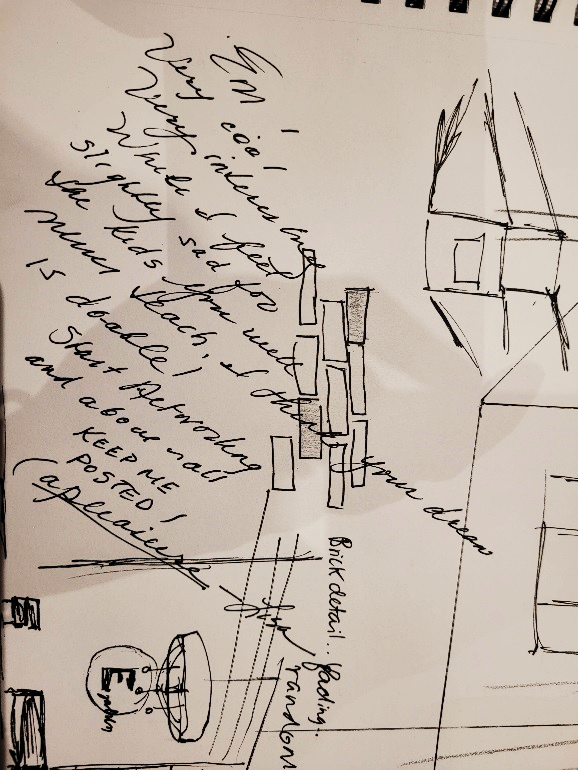 Em!
Very cool
Very interesting
While I feel
slightly sad for
the kids you will
never teach, I think your dream
is doable!
Start Networking
and above all
KEEP ME
POSTED!
Brick detail.. fading..
random
E